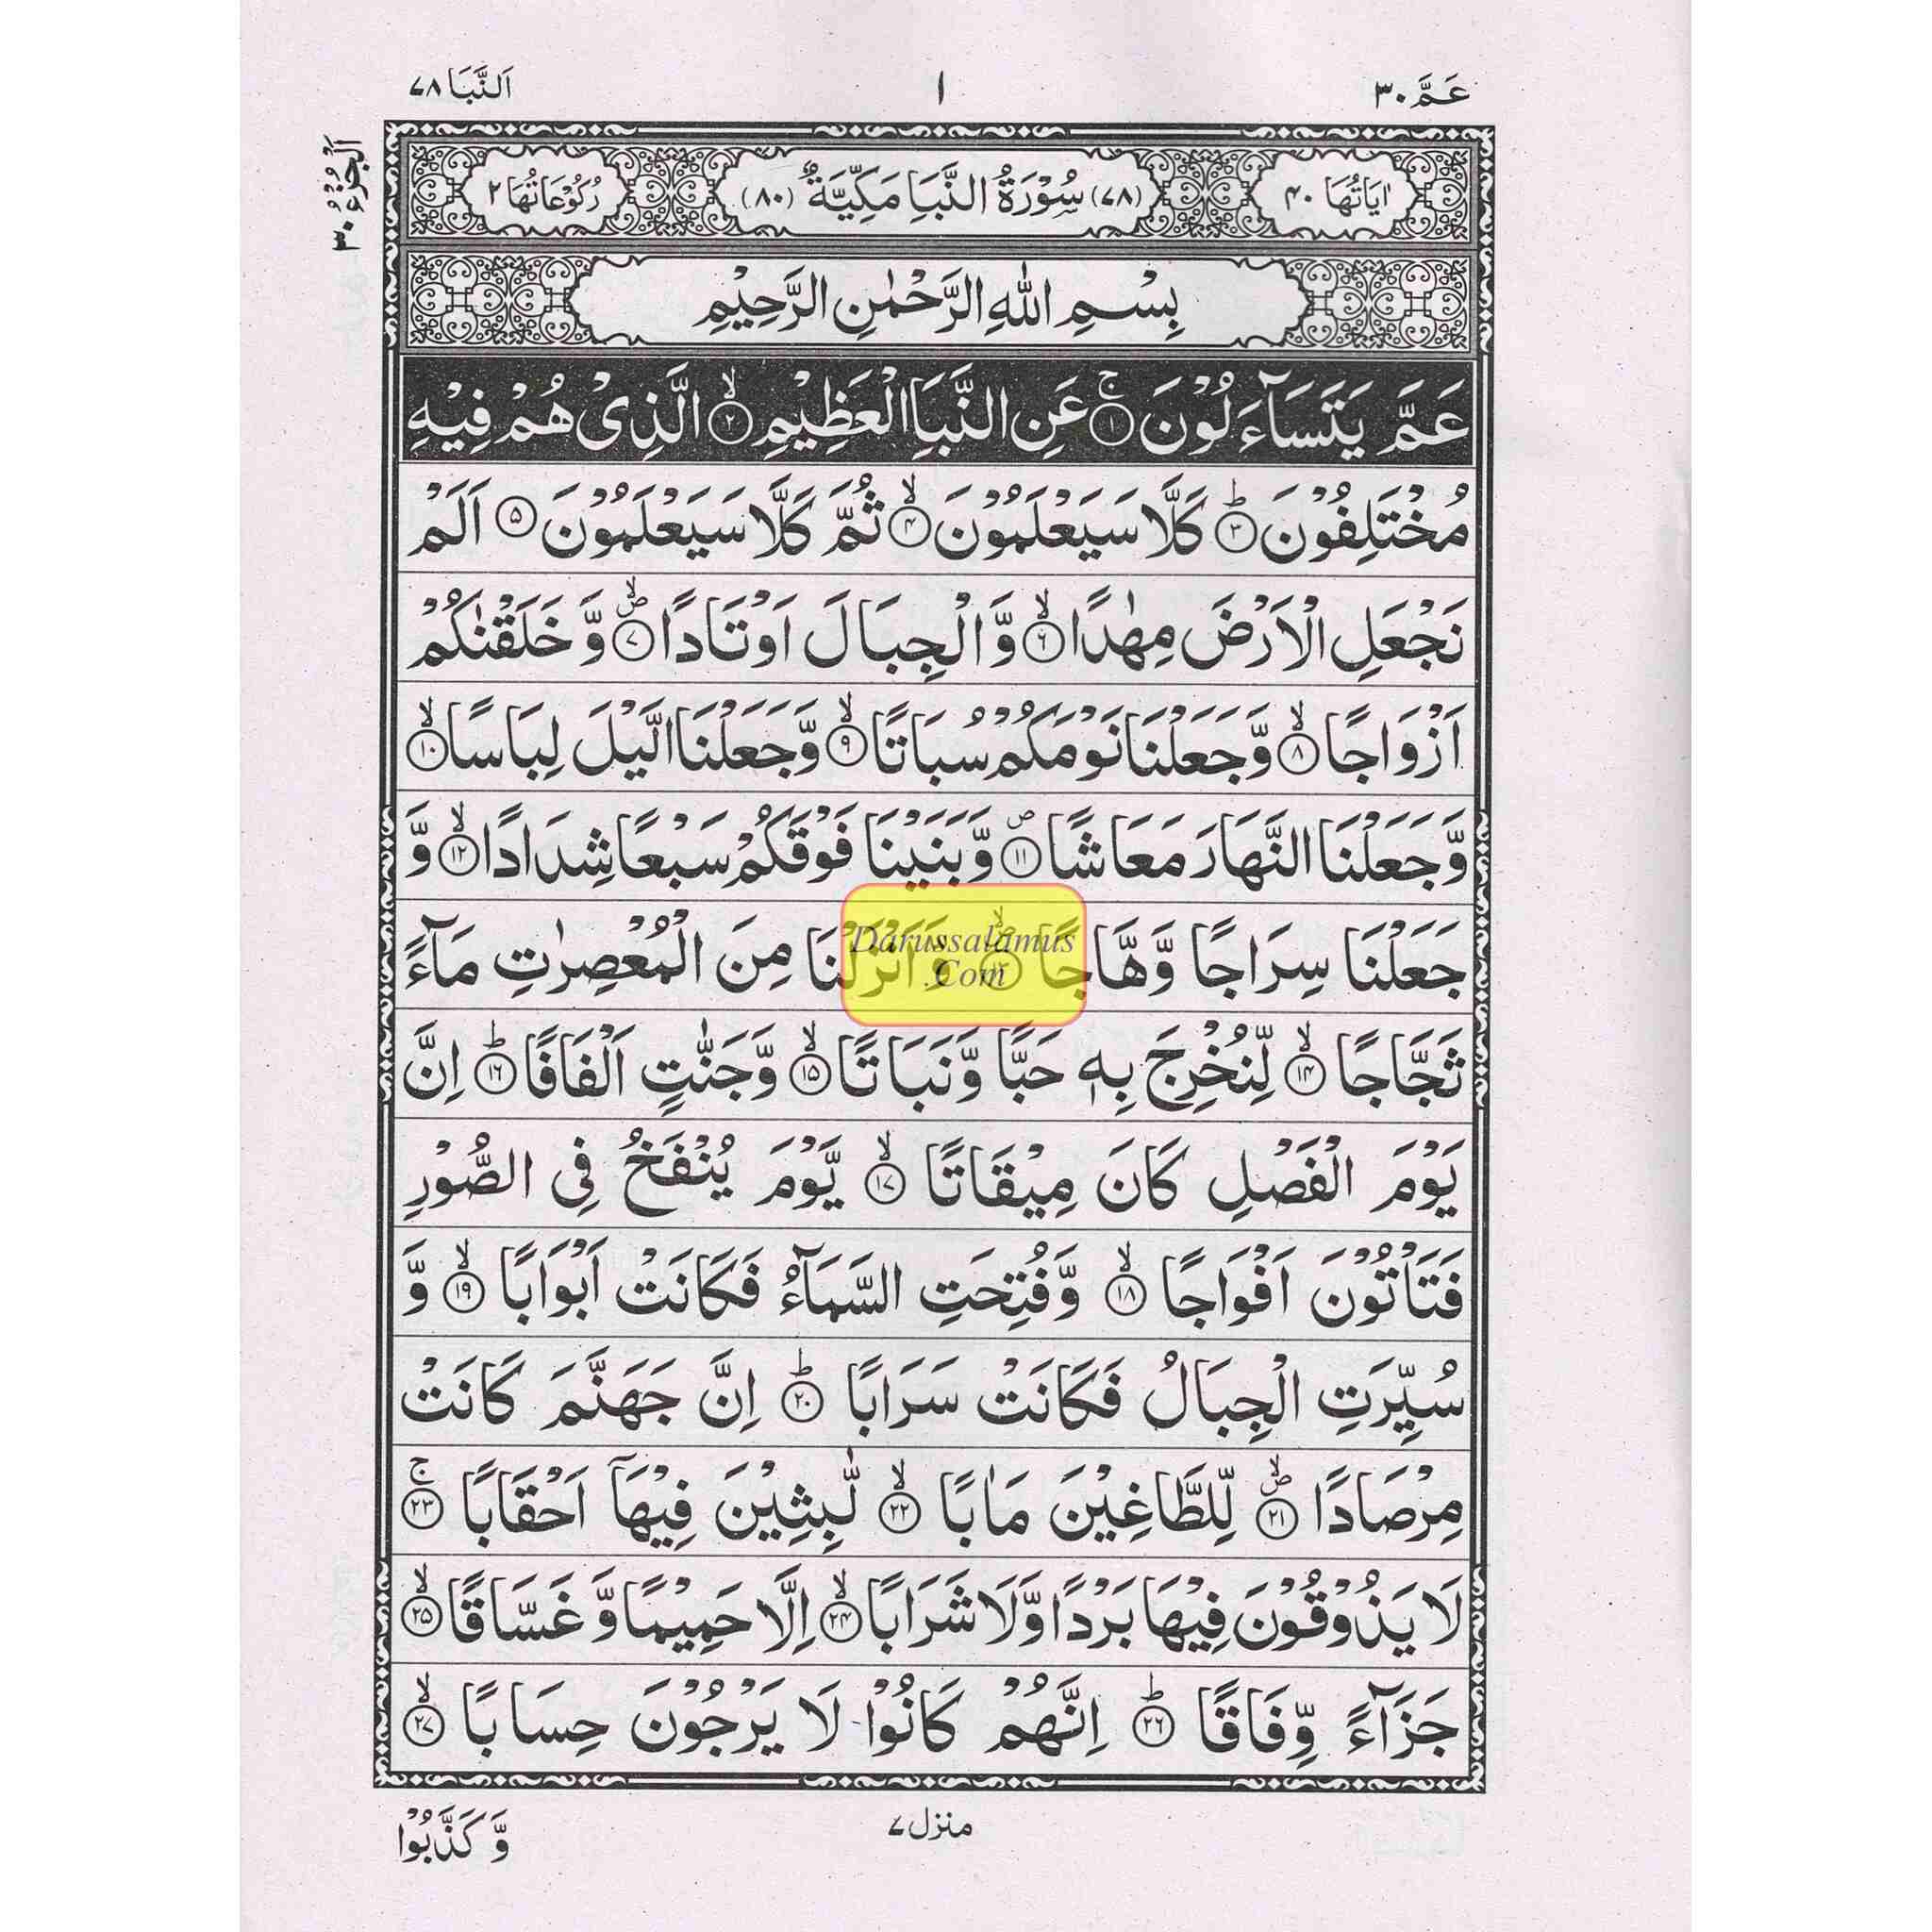 عَمَّ ٣٠
١
اَلنَّبَا ٧٨
اَلْجُزْءُ ٣٠
اٰيَاتُهَا ٤٠
(٧٨) سُوْرَةُ النَّبَاِ مَكِّيَّةٌ (٨٠)
رُكُوْعَاتُهَا ٢
بِسْمِ اللّٰهِ الرَّحْمٰنِ الرَّحِيْمِ
عَمَّ يَتَسَآءَلُوْنَ ۚ ١ عَنِ النَّبَاِ الْعَظِيْمِ ۙ ٢ الَّذِىْ هُمْ فِيْهِ
مُخْتَلِفُوْنَ ؕ ٣ كَلَّا سَيَعْلَمُوْنَ ۙ ٤ ثُمَّ كَلَّا سَيَعْلَمُوْنَ ٥ اَلَمْ
نَجْعَلِ الْاَرْضَ مِهٰدًا ۙ ٦ وَّالْجِبَالَ اَوْتَادًا ۪ۙ ٧ وَّخَلَقْنٰكُمْ
اَزْوَاجًا ۙ ٨ وَّجَعَلْنَا نَوْمَكُمْ سُبَاتًا ۙ ٩ وَّجَعَلْنَا الَّيْلَ لِبَاسًا ۙ ١٠
وَّجَعَلْنَا النَّهَارَ مَعَاشًا ۪ ١١ وَّبَنَيْنَا فَوْقَكُمْ سَبْعًا شِدَادًا ۙ ١٢ وَّ
جَعَلْنَا سِرَاجًا وَّهَّاجًا ۪ۙ ١٣ وَّاَنْزَلْنَا مِنَ الْمُعْصِرٰتِ مَآءً
Darussalamus
.Com
ثَجَّاجًا ۙ ١٤ لِّنُخْرِجَ بِهٖ حَبًّا وَّنَبَاتًا ۙ ١٥ وَّجَنّٰتٍ اَلْفَافًا ؕ ١٦ اِنَّ
يَوْمَ الْفَصْلِ كَانَ مِيْقَاتًا ۙ ١٧ يَّوْمَ يُنْفَخُ فِى الصُّوْرِ
فَتَاْتُوْنَ اَفْوَاجًا ۙ ١٨ وَّفُتِحَتِ السَّمَآءُ فَكَانَتْ اَبْوَابًا ۙ ١٩ وَّ
سُيِّرَتِ الْجِبَالُ فَكَانَتْ سَرَابًا ؕ ٢٠ اِنَّ جَهَنَّمَ كَانَتْ
مِرْصَادًا ۪ۙ ٢١ لِّلطَّاغِيْنَ مَاٰبًا ۙ ٢٢ لّٰبِثِيْنَ فِيْهَاۤ اَحْقَابًا ۚ ٢٣
لَا يَذُوْقُوْنَ فِيْهَا بَرْدًا وَّلَا شَرَابًا ۙ ٢٤ اِلَّا حَمِيْمًا وَّغَسَّاقًا ۙ ٢٥
جَزَآءً وِّفَاقًا ؕ ٢٦ اِنَّهُمْ كَانُوْا لَا يَرْجُوْنَ حِسَابًا ۙ ٢٧
منزل ٧
وَّكَذَّبُوْا